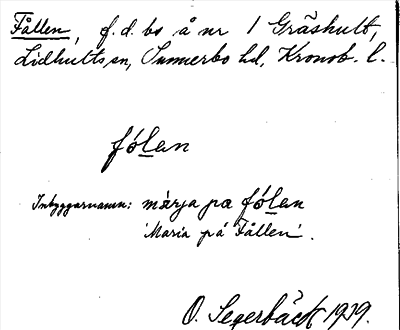 Fållen, f.d. bo å nr 1 Gräshult,
Lidhults sn, Sunnerbo hd, Kronob. l.
fólan
Inbyggarnamn: márja pa fólan
'Maria på Fållen'.
O. Segerbäck 1939.